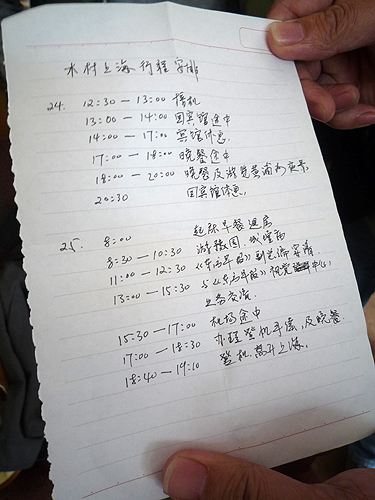 木村上海行程安排
24. 12:30 — 13:00 接机
13:00 — 14:00 回宾馆途中
14:00 — 17:00 宾馆休息.
17:00 — 18:00 晚餐途中
18:00 — 20:00 晚餐及游览黄浦江夜景,
20:30 回宾馆休息,
25. 8:00 起床早餐退房
8:30 — 10:30 游豫园、城隍庙
11:00 — 12:30 《东方早报》
13:00 — 15:30 与《东方早报》视觉中心
业务交流.
15:30 — 17:00 机场途中
17:00 — 18:30 办理登机手续,及晚餐
18:40 — 19:10 登机,离开上海.